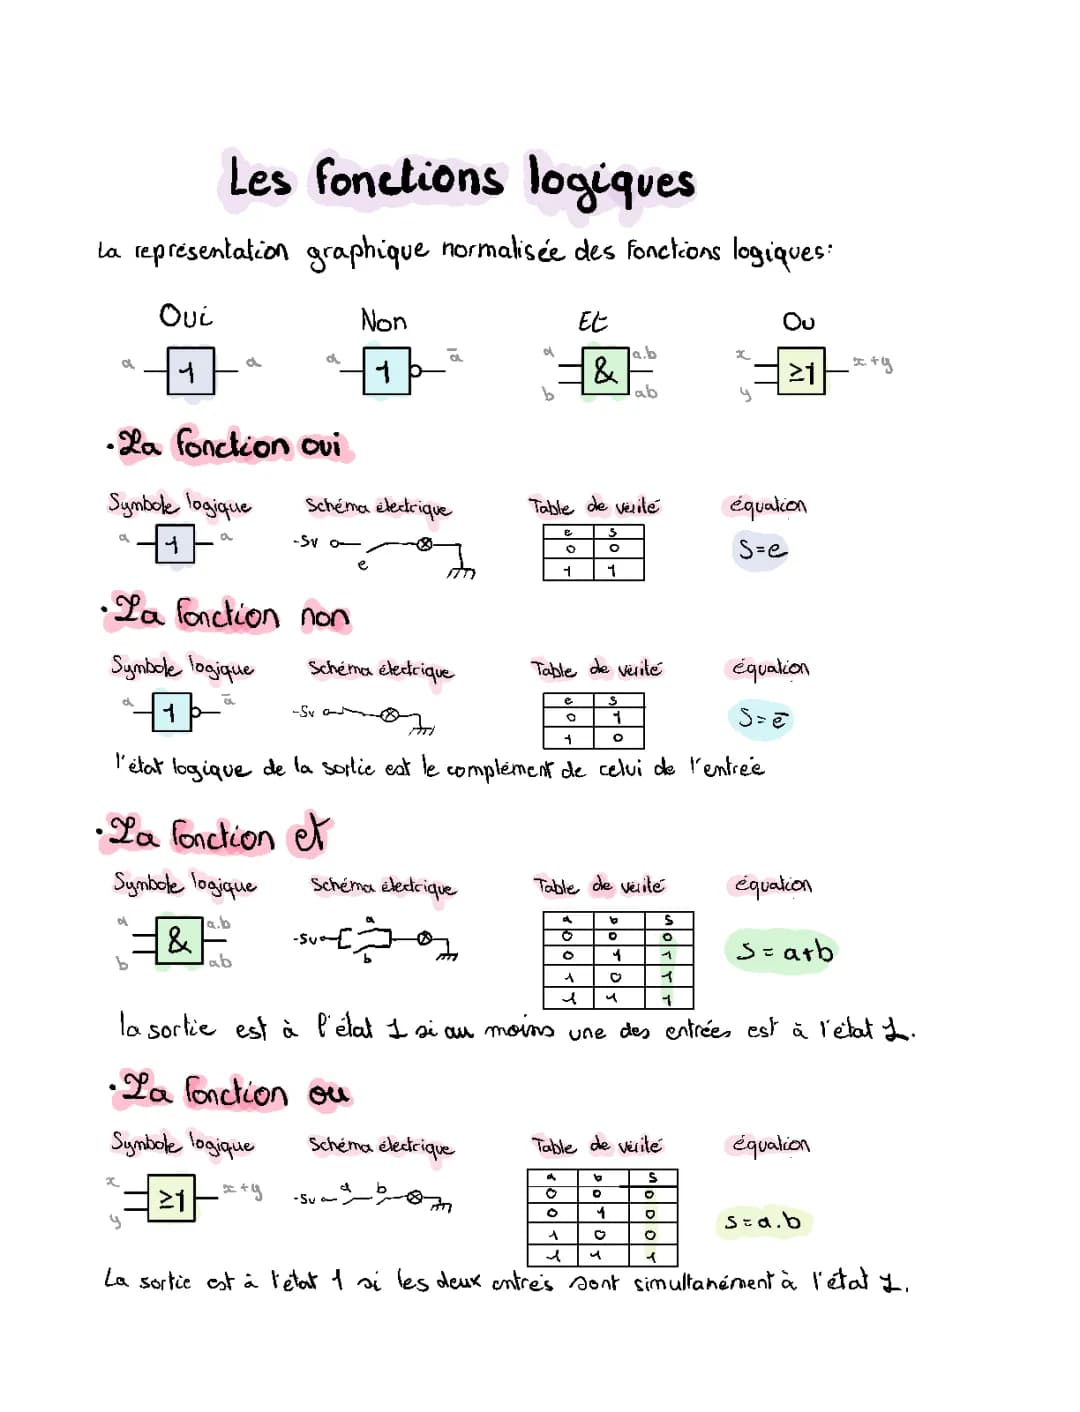 Les fonctions logiques
La représentation graphique normalisée des fonctions logiques:
Oui Non Et Ou
a 1 a a 1 ā a b & a.b ab x y ≥1 x+y
·La fonction oui
Symbole logique Schéma électrique Table de vérité équation
a 1 a -5v e
e S
0 0
1 1
S=e
·La fonction non
Symbole logique Schéma électrique Table de vérité équation
a 1 ā -5v
e S
0 1
1 0
S=ē
l'état logique de la sortie est le complément de celui de l'entrée
·La fonction et
Symbole logique Schéma électrique Table de vérité équation
a b & a.b ab -5v a b
a b S
0 0 0
0 1 1
1 0 1
1 1 1
S=a+b
la sortie est à l'état 1 si au moins une des entrées est à l'état 1.
·La fonction ou
Symbole logique Schéma électrique Table de vérité équation
x y ≥1 x+y -5v a b
a b S
0 0 0
0 1 0
1 0 0
1 1 1
S=a.b
La sortie est à l'état 1 si les deux entrés sont simultanément à l'état 1.